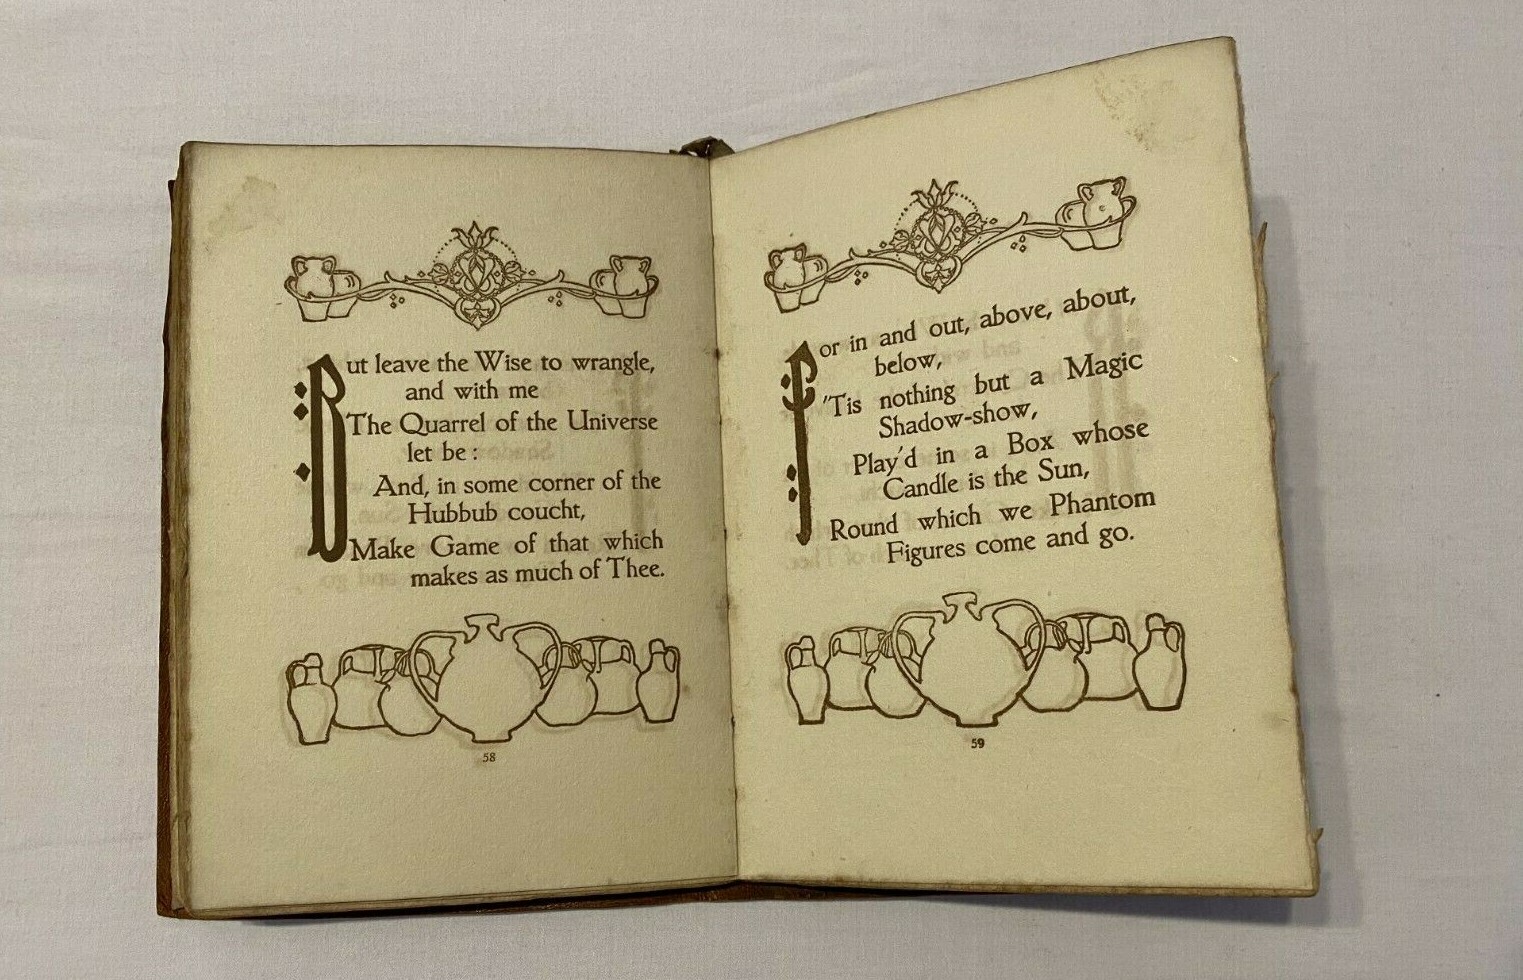 But leave the Wise to wrangle,
and with me
The Quarrel of the Universe
let be:
And, in some corner of the
Hubbub coucht,
Make Game of that which
makes as much of Thee.
58
For in and out, above, about,
below,
'Tis nothing but a Magic
Shadow-show,
Play'd in a Box whose
Candle is the Sun,
Round which we Phantom
Figures come and go.
59